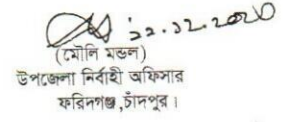 ২২.১২.২০২৩
(মৌলি মন্ডল)
উপজেলা নির্বাহী অফিসার
ফরিদগঞ্জ,চাঁদপুর।